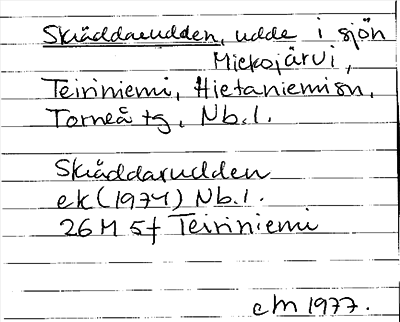 Skräddarudden, udde i sjön
Miekojärvi,
Teiriniemi, Hietaniemi sn,
Torneå tg, Nb.l.
Skräddarudden
ek (1974) Nb.l.
26 M 5f Teiriniemi
cM 1977.